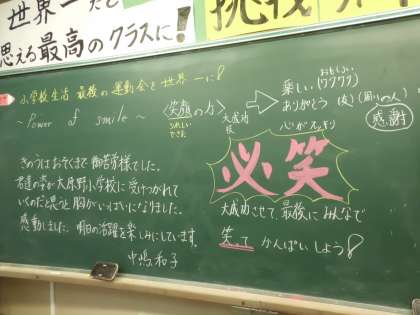 世界一だと
思える最高のクラスに!
挑戦
小学校生活 最後の運動会を世界一に!
～Power of smile～
〈笑顔の力〉
うれしい
できた
大成功
おもしろい
楽しい(ワクワク)
ありがとう
感謝
心がスッキリ
必笑
きのうはおそくまで御苦労様でした。
君達の事が大原野小学校に受けつがれて
いくのだと思うと胸がいっぱいになりました。
感動しました。明日の活躍を楽しみにしています。
中嶋和子
大成功させて、最後にみんなで
笑って かんぱいしよう!